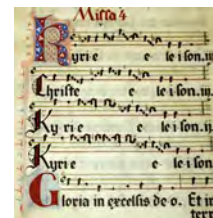 Missa 4
Kyrie e le i son. ij
Christe e le i son. ij
Ky rie e le i son. ij
Kyrie e le i son
Gloria in excelsis de o. Et in
terr